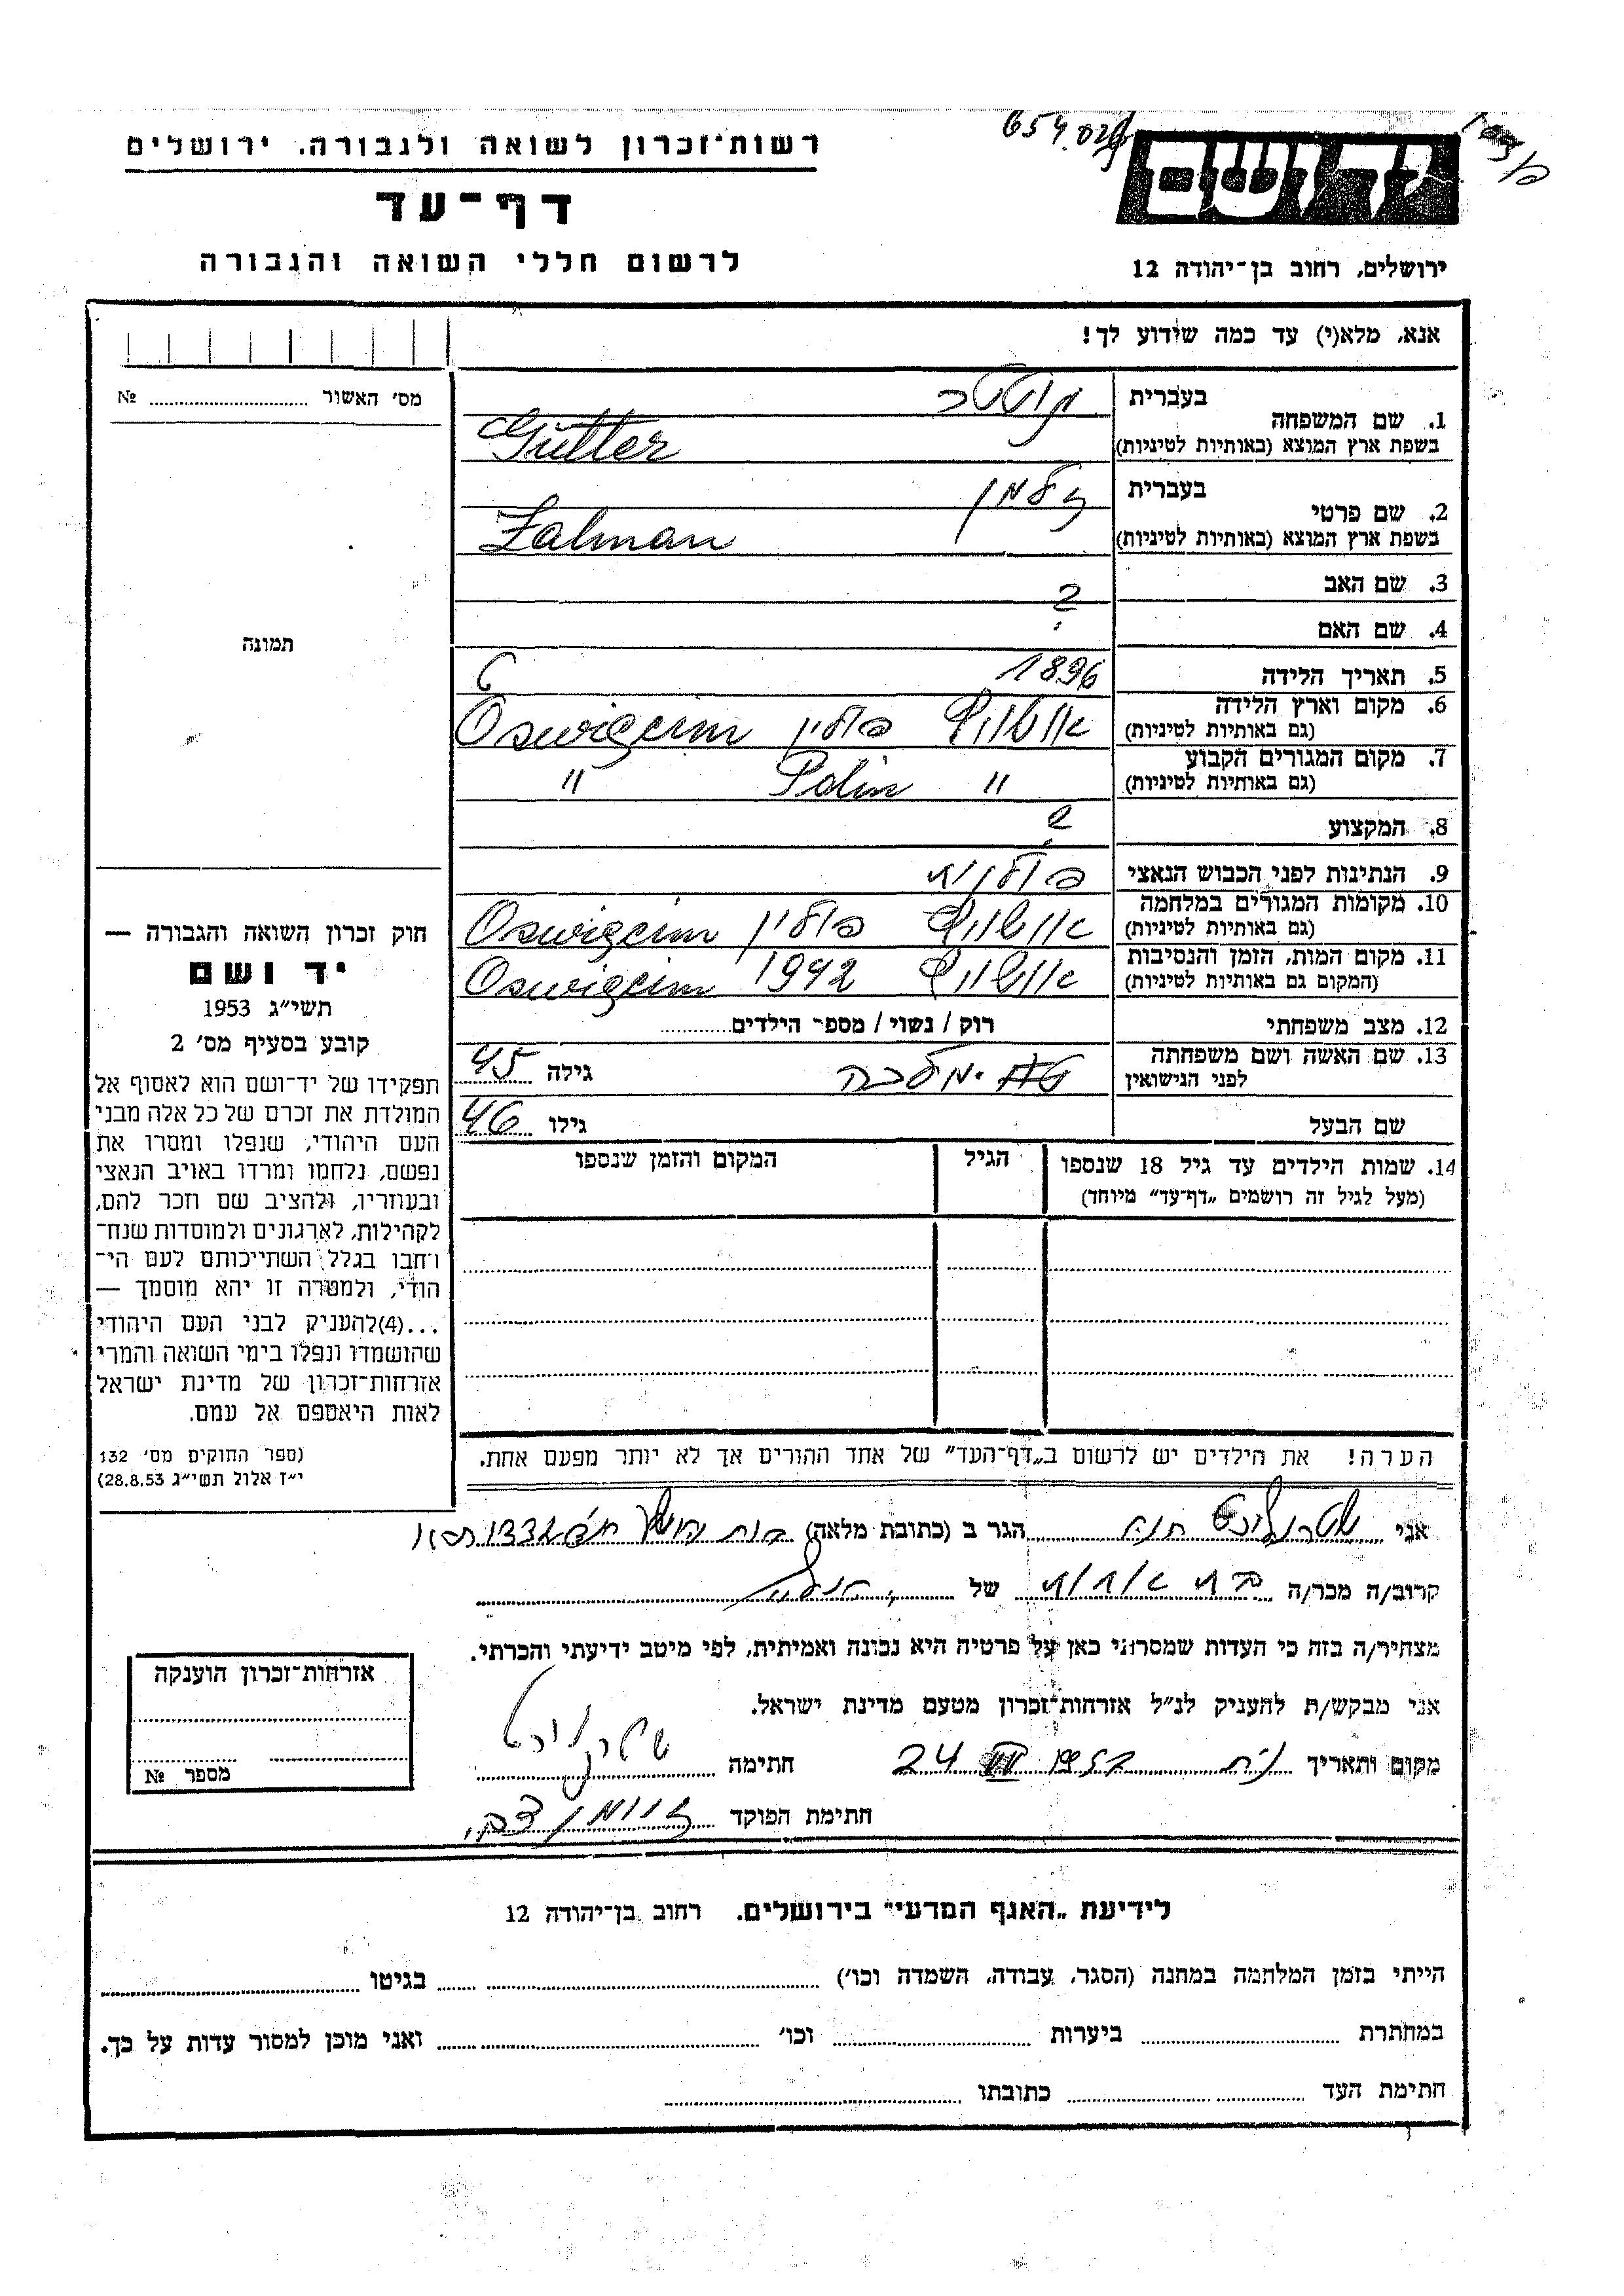 רשות־זכרון לשואה ולגבורה, ירושלים
דף־עד
לרשום חללי השואה והגבורה
יד ושם
ירושלים, רחוב בן־יהודה 12
אנא, מלא(י) עד כמה שידוע לך!
מס׳ האשור № 
1. שם המשפחה
בעברית
בשפת ארץ המוצא (באותיות לטיניות) Gutter
2. שם פרטי
בעברית זלמן
בשפת ארץ המוצא (באותיות לטיניות) Zalman
3. שם האב ?
4. שם האם
5. תאריך הלידה 1896
6. מקום וארץ הלידה פולין
(גם באותיות לטיניות)
7. מקום המגורים הקבוע " Polin "
(גם באותיות לטיניות)
8. המקצוע ?
9. הנתינות לפני הכבוש הנאצי פולנית
10. מקומות המגורים במלחמה פולין
(גם באותיות לטיניות)
11. מקום המות, הזמן והנסיבות 1942
(המקום גם באותיות לטיניות)
12. מצב משפחתי רוק / נשוי / מספר הילדים
13. שם האשה ושם משפחתה מלכה גילה 45
לפני הנישואין
שם הבעל גילו 46
14. שמות הילדים עד גיל 18 שנספו הגיל המקום והזמן שנספו
(מעל לגיל זה רושמים „דף־עד״ מיוחד)
הערה! את הילדים יש לרשום ב„דף־העד״ של אחד ההורים אך לא יותר מפעם אחת.
תמונה
חוק זכרון השואה והגבורה —
יד ושם
תשי״ג 1953
קובע בסעיף מס׳ 2
תפקידו של יד־ושם הוא לאסוף אל
המולדת את זכרם של כל אלה מבני
העם היהודי, שנפלו ומסרו את
נפשם, נלחמו ומרדו באויב הנאצי
ובעוזריו, ולהציב שם וזכר להם,
לקהילות, לארגונים ולמוסדות שנח־
רבו בגלל השתייכותם לעם הי־
הודי, ולמטרה זו יהא מוסמך —
...(4)להעניק לבני העם היהודי
שהושמדו ונפלו בימי השואה והמרי
אזרחות־זכרון של מדינת ישראל
לאות היאספם אל עמם.
(ספר החוקים מס׳ 132
י״ז אלול תשי״ג 28.8.53)
אני הגר ב (כתובת מלאה)
קרוב/ה מכר/ה בת של
מצהיר/ה בזה כי העדות שמסרתי כאן על פרטיה היא נכונה ואמיתית, לפי מיטב ידיעתי והכרתי.
אני מבקש/ת להעניק לנ״ל אזרחות־זכרון מטעם מדינת ישראל.
מקום ותאריך 24 חתימה
חתימת הפוקד
אזרחות־זכרון הוענקה
מספר №
לידיעת „האגף המדעי״ בירושלים, רחוב בן־יהודה 12
הייתי בזמן המלחמה במחנה (הסגר, עבודה, השמדה וכו׳) בגיטו
במחתרת ביערות וכו׳ ואני מוכן למסור עדות על כך.
חתימת העד כתובתו